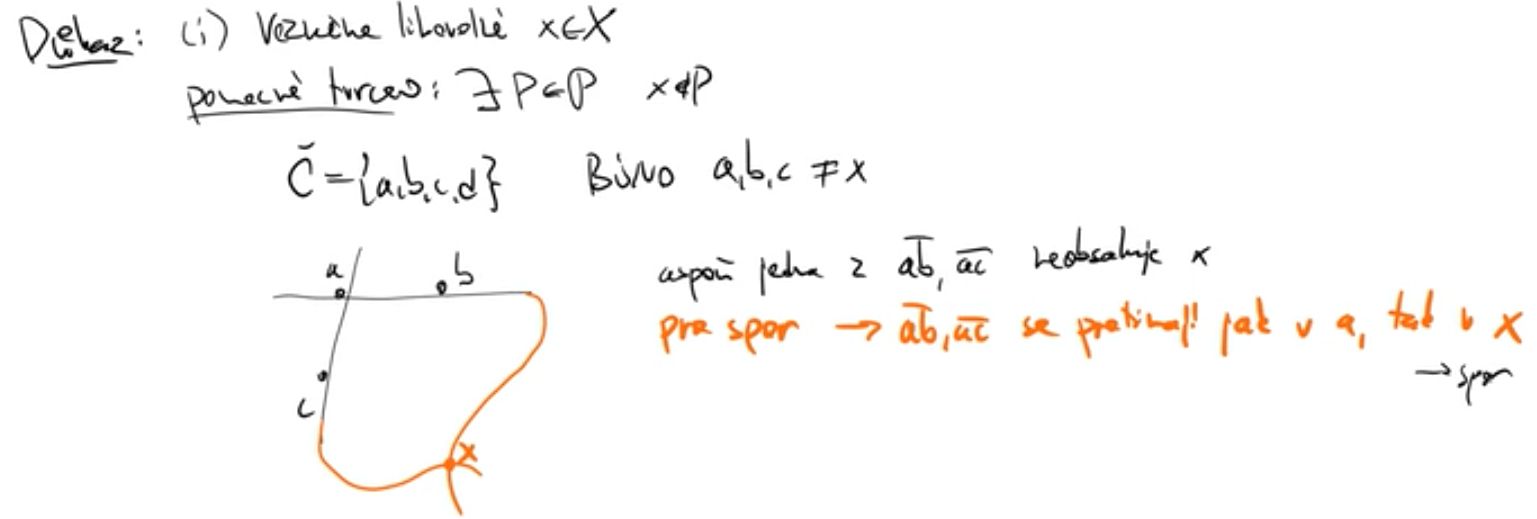 Důkaz: (i) Vezměme libovolné x∈X
pomocné tvrzení: ∃ P∈𝒫 x∉P
Č={a,b,c,d} BÚNO a,b,c ≠ x
a
b
c
x
aspoň jedna z a̅b̅, a̅c̅ neobsahuje x
pro spor → a̅b̅, a̅c̅ se protínají jak v a, tak v x
→ spor